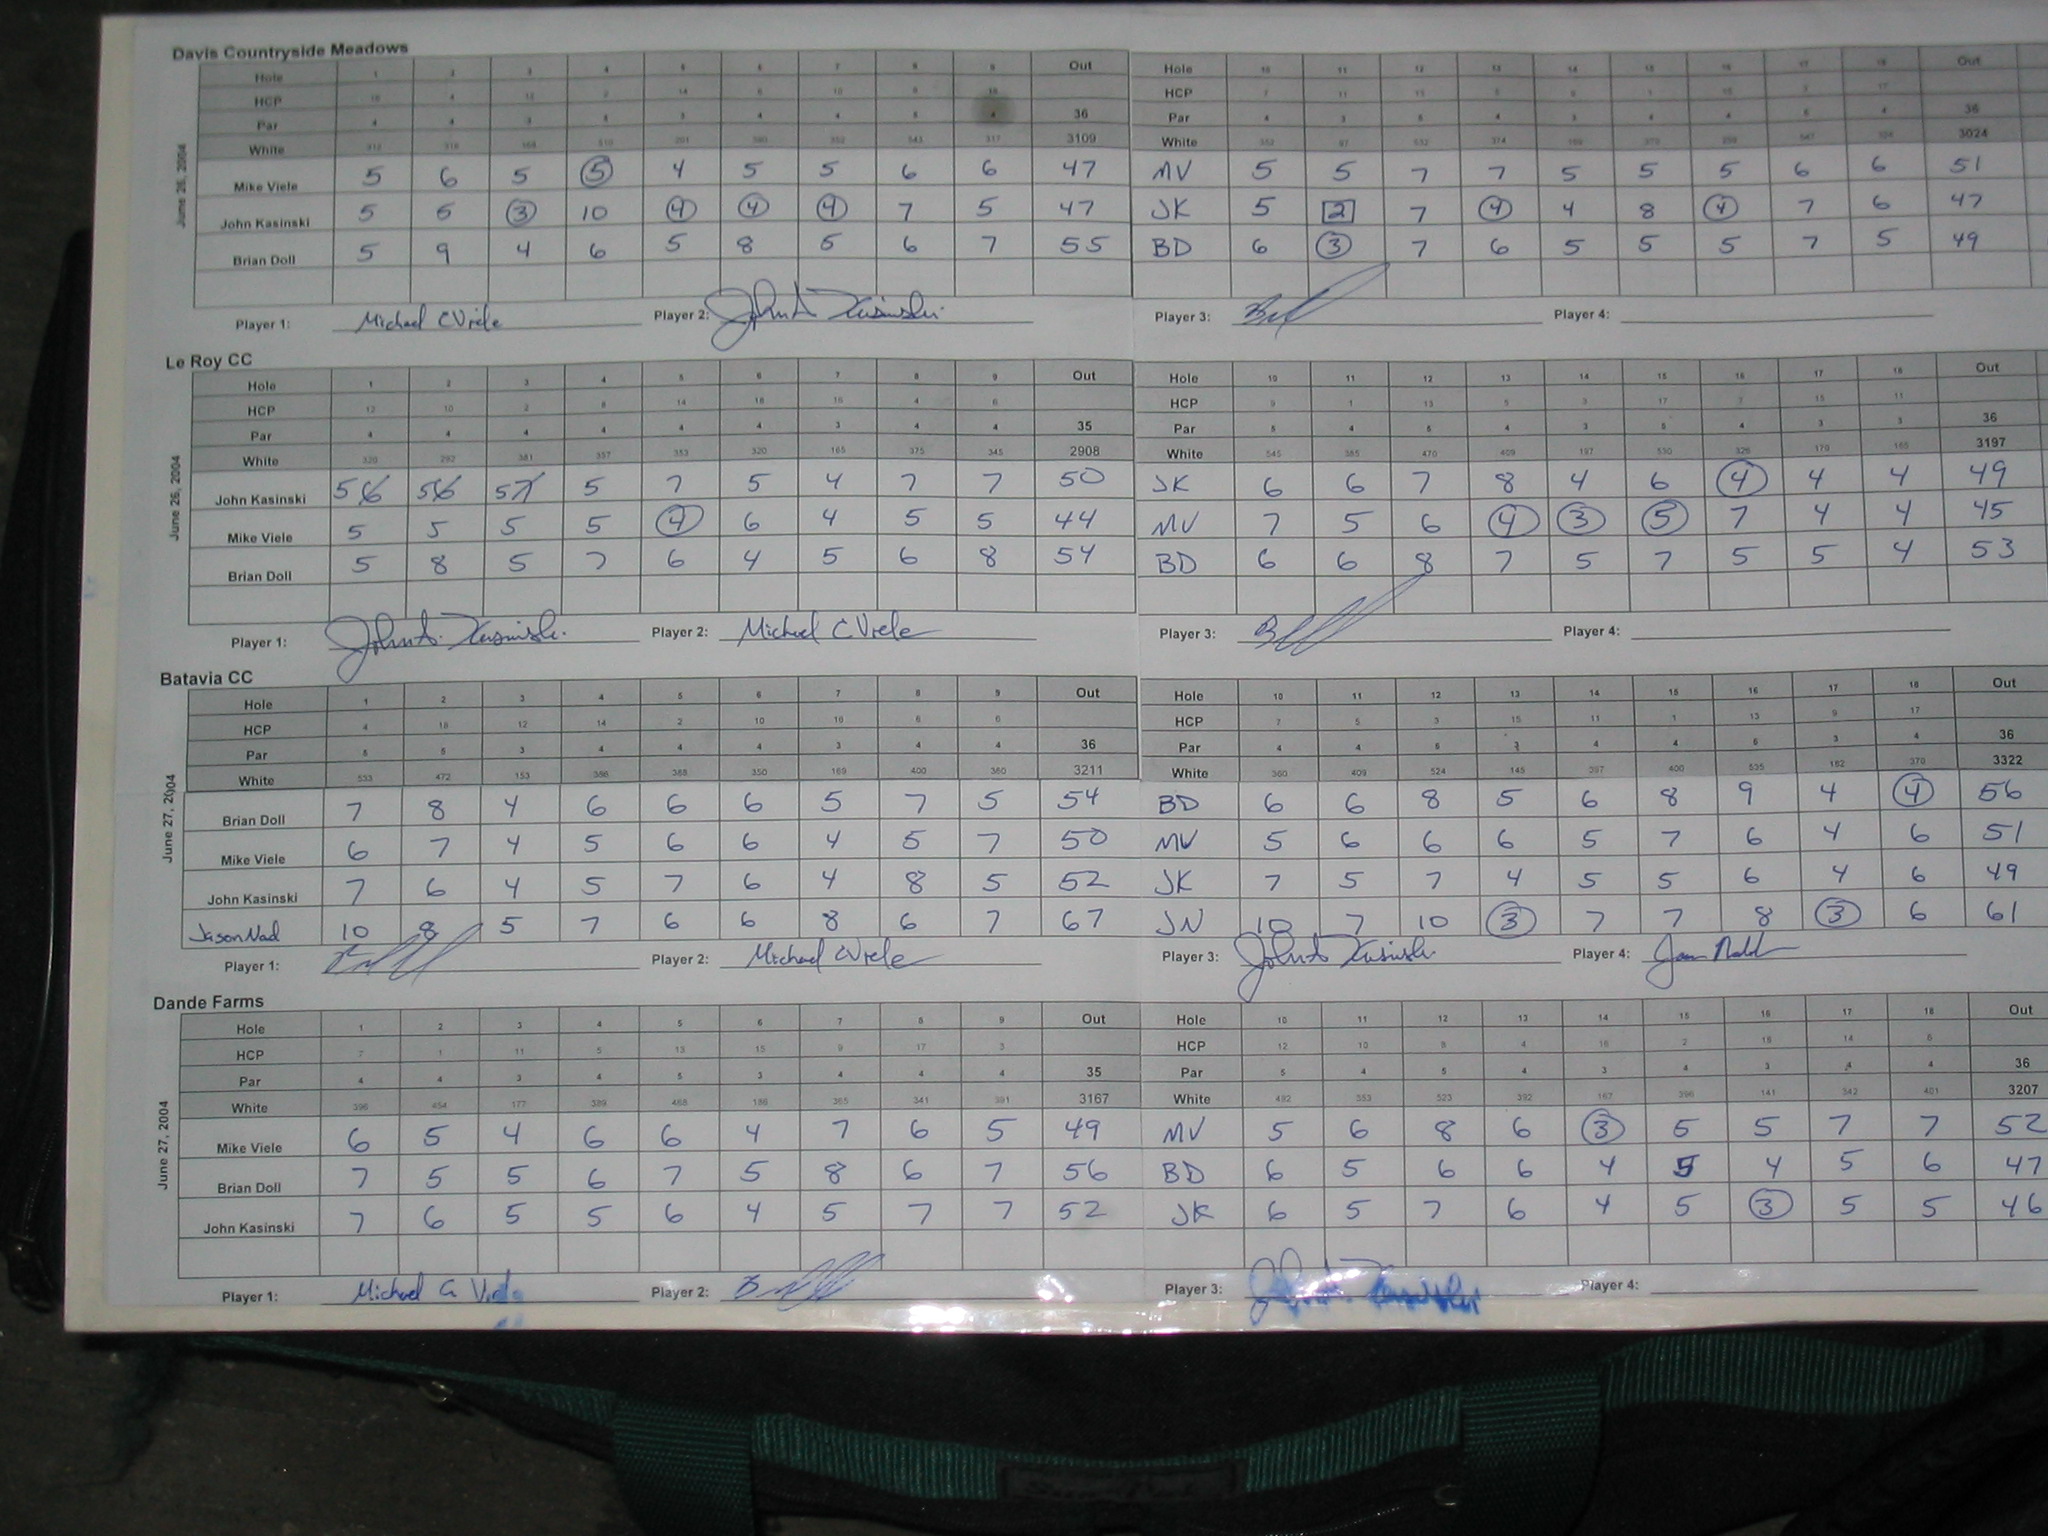 Davis Countryside Meadows
June 26, 2004
Hole 1 2 3 4 5 6 7 8 9 Out Hole 10 11 12 13 14 15 16 17 18 Out
HCP HCP
Par 36 Par 36
White 3109 White 3024
Mike Viele 5 6 5 5 4 5 5 6 6 47 MV 5 5 7 7 5 5 5 6 6 51
John Kasinski 5 5 3 10 4 4 4 7 5 47 JK 5 2 7 4 4 8 4 7 6 47
Brian Doll 5 9 4 6 5 8 5 6 7 55 BD 6 3 7 6 5 5 5 7 5 49
Player 1: Michael C Viele Player 2: John A Kasinski Player 3: Player 4:
Le Roy CC
June 26, 2004
Hole 1 2 3 4 5 6 7 8 9 Out Hole 10 11 12 13 14 15 16 17 18 Out
HCP 12 10 2 8 14 18 16 4 6 HCP 9 1 13 5 3 17 7 15 11
Par 4 4 4 4 4 4 3 4 4 35 Par 5 4 5 4 3 5 4 3 3 36
White 320 292 381 357 353 320 165 375 345 2908 White 545 385 470 409 197 530 326 170 165 3197
John Kasinski 5 5 5 5 7 5 4 7 7 50 JK 6 6 7 8 4 6 4 4 4 49
Mike Viele 5 5 5 5 4 6 4 5 5 44 MV 7 5 6 4 3 5 7 4 4 45
Brian Doll 5 8 5 7 6 4 5 6 8 54 BD 6 6 8 7 5 7 5 5 4 53
Player 1: John A. Kasinski Player 2: Michael C Viele Player 3: Player 4:
Batavia CC
June 27, 2004
Hole 1 2 3 4 5 6 7 8 9 Out Hole 10 11 12 13 14 15 16 17 18 Out
HCP 4 18 12 14 2 10 16 6 HCP 7 5 3 15 11 1 13 9 17
Par 5 5 3 4 4 4 3 4 4 36 Par 4 4 5 3 4 4 5 3 4 36
White 533 472 153 386 388 350 169 400 360 3211 White 360 409 524 145 397 400 535 182 370 3322
Brian Doll 7 8 4 6 6 6 5 7 5 54 BD 6 6 8 5 6 8 9 4 4 56
Mike Viele 6 7 4 5 6 6 4 5 7 50 MV 5 6 6 6 5 7 6 4 6 51
John Kasinski 7 6 4 5 7 6 4 8 5 52 JK 7 5 7 4 5 5 6 4 6 49
Jason Nad 10 8 5 7 6 6 8 6 7 67 JN 10 7 10 3 7 7 8 3 6 61
Player 1: Player 2: Michael C Viele Player 3: John A Kasinski Player 4:
Dande Farms
June 27, 2004
Hole 1 2 3 4 5 6 7 8 9 Out Hole 10 11 12 13 14 15 16 17 18 Out
HCP 7 1 11 5 13 15 9 17 3 HCP 12 10 8 4 16 2 18 14 6
Par 4 4 3 4 5 3 4 4 4 35 Par 5 4 5 4 3 4 3 4 4 36
White 396 454 177 389 468 186 365 341 391 3167 White 492 353 523 392 167 396 141 342 401 3207
Mike Viele 6 5 4 6 6 4 7 6 5 49 MV 5 6 8 6 3 5 5 7 7 52
Brian Doll 7 5 5 6 7 5 8 6 7 56 BD 6 5 6 6 4 5 4 5 6 47
John Kasinski 7 6 5 5 6 4 5 7 7 52 JK 6 5 7 6 4 5 3 5 5 46
Player 1: Michael C Viele Player 2: Player 3: John A. Kasinski Player 4: